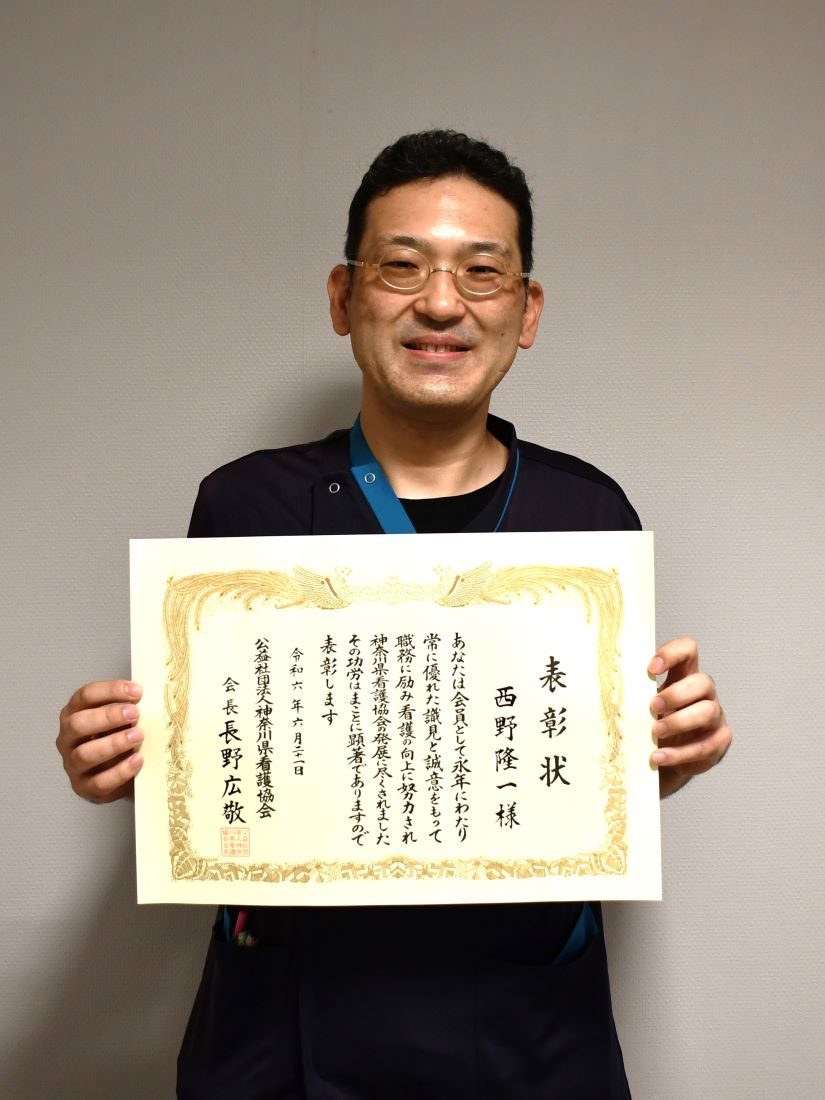 表彰状
西野隆一様
あなたは会員として永年にわたり
常に優れた識見と誠意をもって
職務に励み看護の向上に努力され
神奈川県看護協会の発展に尽くされました
その功労はまことに顕著でありますので
表彰します
令和六年六月二十一日
公益社団法人神奈川県看護協会
会長長野広敬